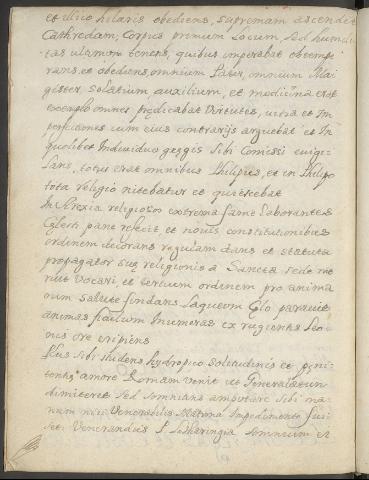 et illico hilaris obediens, supremam ascendit
Cathedram, Corpus primum Locum, sed humili
tas ultimum tenens, quibus imperabat obtempe
rans et obediens omnium Pater, omnium Ma
gister, solatium, auxilium, et medicina erat
exemplo omnes prędicabat Virtutes, uitia et Im
perfectiones cum eius contrarijs arguebat et In
quolibet Individuo gregis sibi Comissi euigi
lans, totus erat omnibus Philipus, et in Philipo
tota religio nitebatur et quiescebat
In religiosos extrema fame Laborantes
pane refecit et nouis constitutionibus
ordinem decorans regulam dans et statuta
propagator suę religionis a Sancta sede me
ruit Vocari, et tertium ordinem pro anima
num salute fundans Laqueum
animas Inumeras ex rugientis Leo
nis ore eripiens
sibi hydropico solitudinis et pęni
tentię amore Romam venit ut Generalatum
dimiteret sed somnians amputare sibi ma
num nisi Venerabilis Matrona Impedimento fuis
set. Venerandus P. somnium